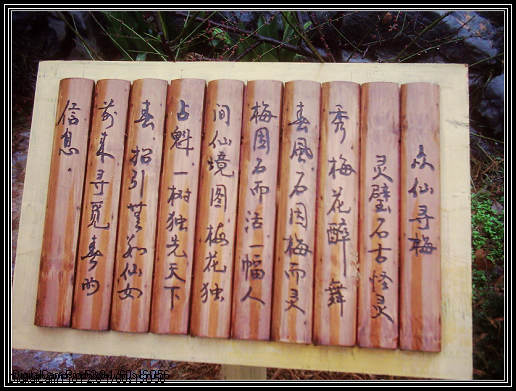 众仙寻梅
灵璧石古怪灵
秀梅花醉舞
春風石因梅而灵
梅因石而活一幅人
间仙境图梅花独
占魁一树独先天下
春招引無数仙女
前来寻觅春的
信息.